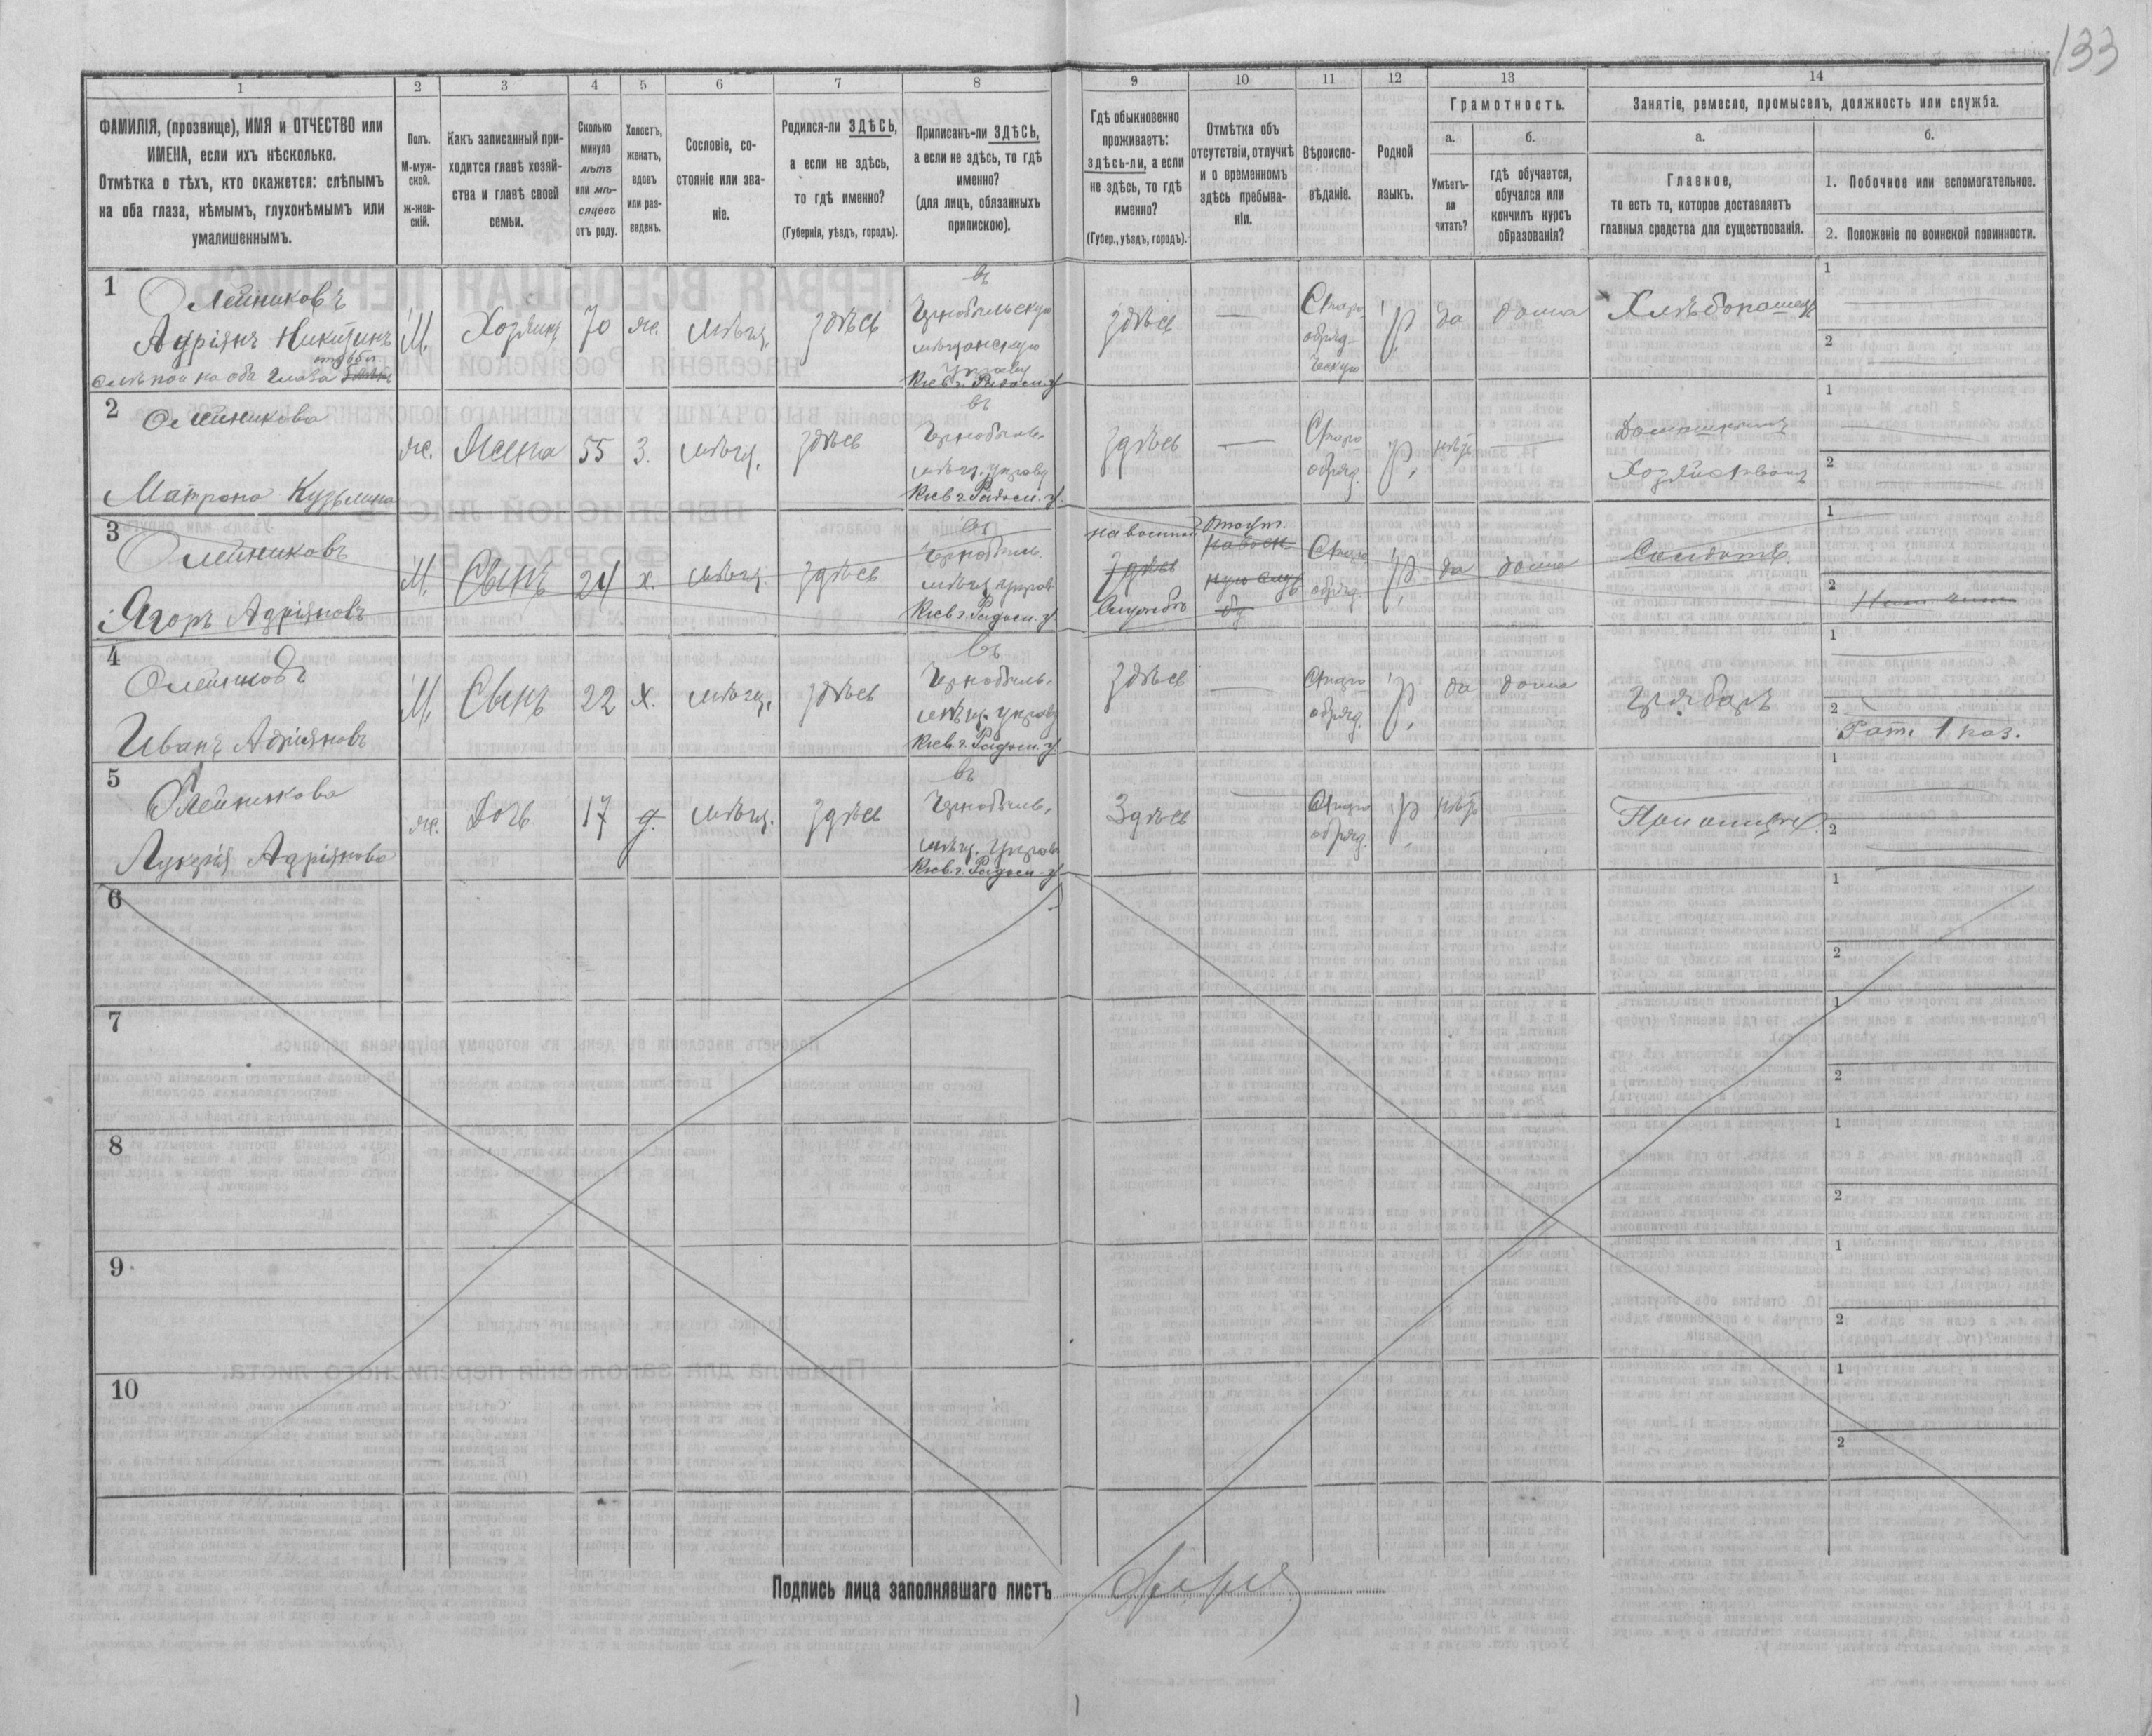 133
1 2 3 4 5 6 7 8 9 10 11 12 13 14
ФАМИЛІЯ, (прозвище), ИМЯ и ОТЧЕСТВО или
ИМЕНА, если ихъ нѣсколько.
Отмѣтка о тѣхъ, кто окажется: слѣпымъ
на оба глаза, нѣмымъ, глухонѣмымъ или
умалишеннымъ.
Полъ.
М-муж-
ской.
ж-жен-
скій.
Какъ записанный при-
ходится главѣ хозяй-
ства и главѣ своей
семьи.
Сколько
минуло
лѣтъ
или мѣ-
сяцевъ
отъ роду.
Холостъ,
женатъ,
вдовъ
или раз-
веденъ.
Сословіе, со-
стояніе или зва-
ніе.
Родился-ли ЗДѢСЬ,
а если не здѣсь,
то гдѣ именно?
(Губернія, уѣздъ, городъ).
Приписанъ-ли ЗДѢСЬ,
а если не здѣсь, то гдѣ
именно?
(для лицъ, обязанныхъ
припискою).
Гдѣ обыкновенно
проживаетъ:
здѣсь-ли, а если
не здѣсь, то гдѣ
именно?
(Губер., уѣздъ, городъ).
Отмѣтка объ
отсутствіи, отлучкѣ
и о временномъ
здѣсь пребыва-
ніи.
Вѣроиспо-
вѣданіе.
Родной
языкъ.
Грамотность.
а.
Умѣетъ-
ли
читать?
б.
гдѣ обучается,
обучался или
кончилъ курсъ
образованія?
Занятіе, ремесло, промыселъ, должность или служба.
а.
Главное,
то есть то, которое доставляетъ
главныя средства для существованія.
б.
1. Побочное или вспомогательное.
2. Положеніе по воинской повинности.
1
Олейниковъ
Адріянъ Никитинъ
слѣпой на оба глаза
М. Хозяинъ 70 ж. мѣщ. здѣсь
въ
Чернобыльскую
мѣщанскую
управу
Кіев. г. Радом. у.
здѣсь — Старо
обряд-
ческую
р. да дома Хлѣбопашецъ
1
2
2
Олейникова
Матрона Кузьмина
ж. Жена 55 з. мѣщ. здѣсь
въ
Чернобыль.
мѣщ. управу
Кіев. г. Радом. у.
здѣсь — Старо
обряд.
р. нѣтъ — Домашнимъ
Хозяйствомъ
1
2
3
Олейниковъ
Ягоръ Адріяновъ
М. Сынъ 24 х. мѣщ. здѣсь
въ
Чернобыль.
мѣщ. управ
Кіев. г. Радом. у.
на военной
здѣсь
службѣ
Старо
обряд.
р. да дома Солдатъ.
1
2
4
Олейниковъ
Иванъ Адріяновъ
М. Сынъ 22 х. мѣщ. здѣсь
въ
Чернобыль.
мѣщ. управу
Кіев. г. Радом. у.
здѣсь — Старо
обряд.
р. да дома грабаръ
1
2
Рат. 1 раз.
5
Олейникова
Лукерія Адріянова
ж. Дочь 17 д. мѣщ. здѣсь
въ
Чернобыль.
мѣщ. управ
Кіев. г. Радом. у.
Здѣсь — Старо
обряд.
р. нѣтъ —
1
2
6
1
2
7
1
2
8
1
2
9
1
2
10
1
2
Подпись лица заполнявшаго листъ